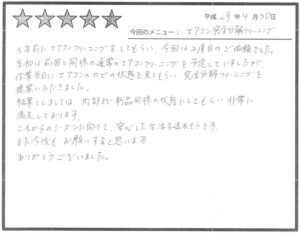 平成29年4月30日
今回のメニュー：エアコン完全分解クリーニング
3年前にエアコンクリーニングをしてもらい、今回は2度目のご依頼でした。
当初は前回と同様の通常のエアコンクリーニングを予定していましたが、
作業当日にエアコンのカビの状態を見てもらい、完全分解クリーニングを
提案いただきました。
結果としましては、内部が新品同様の状態にしてもらい非常に
満足しております。
これからのシーズンに向けて、安心した生活を送れそうです。
また今後もお願いすると思います
ありがとうございました。